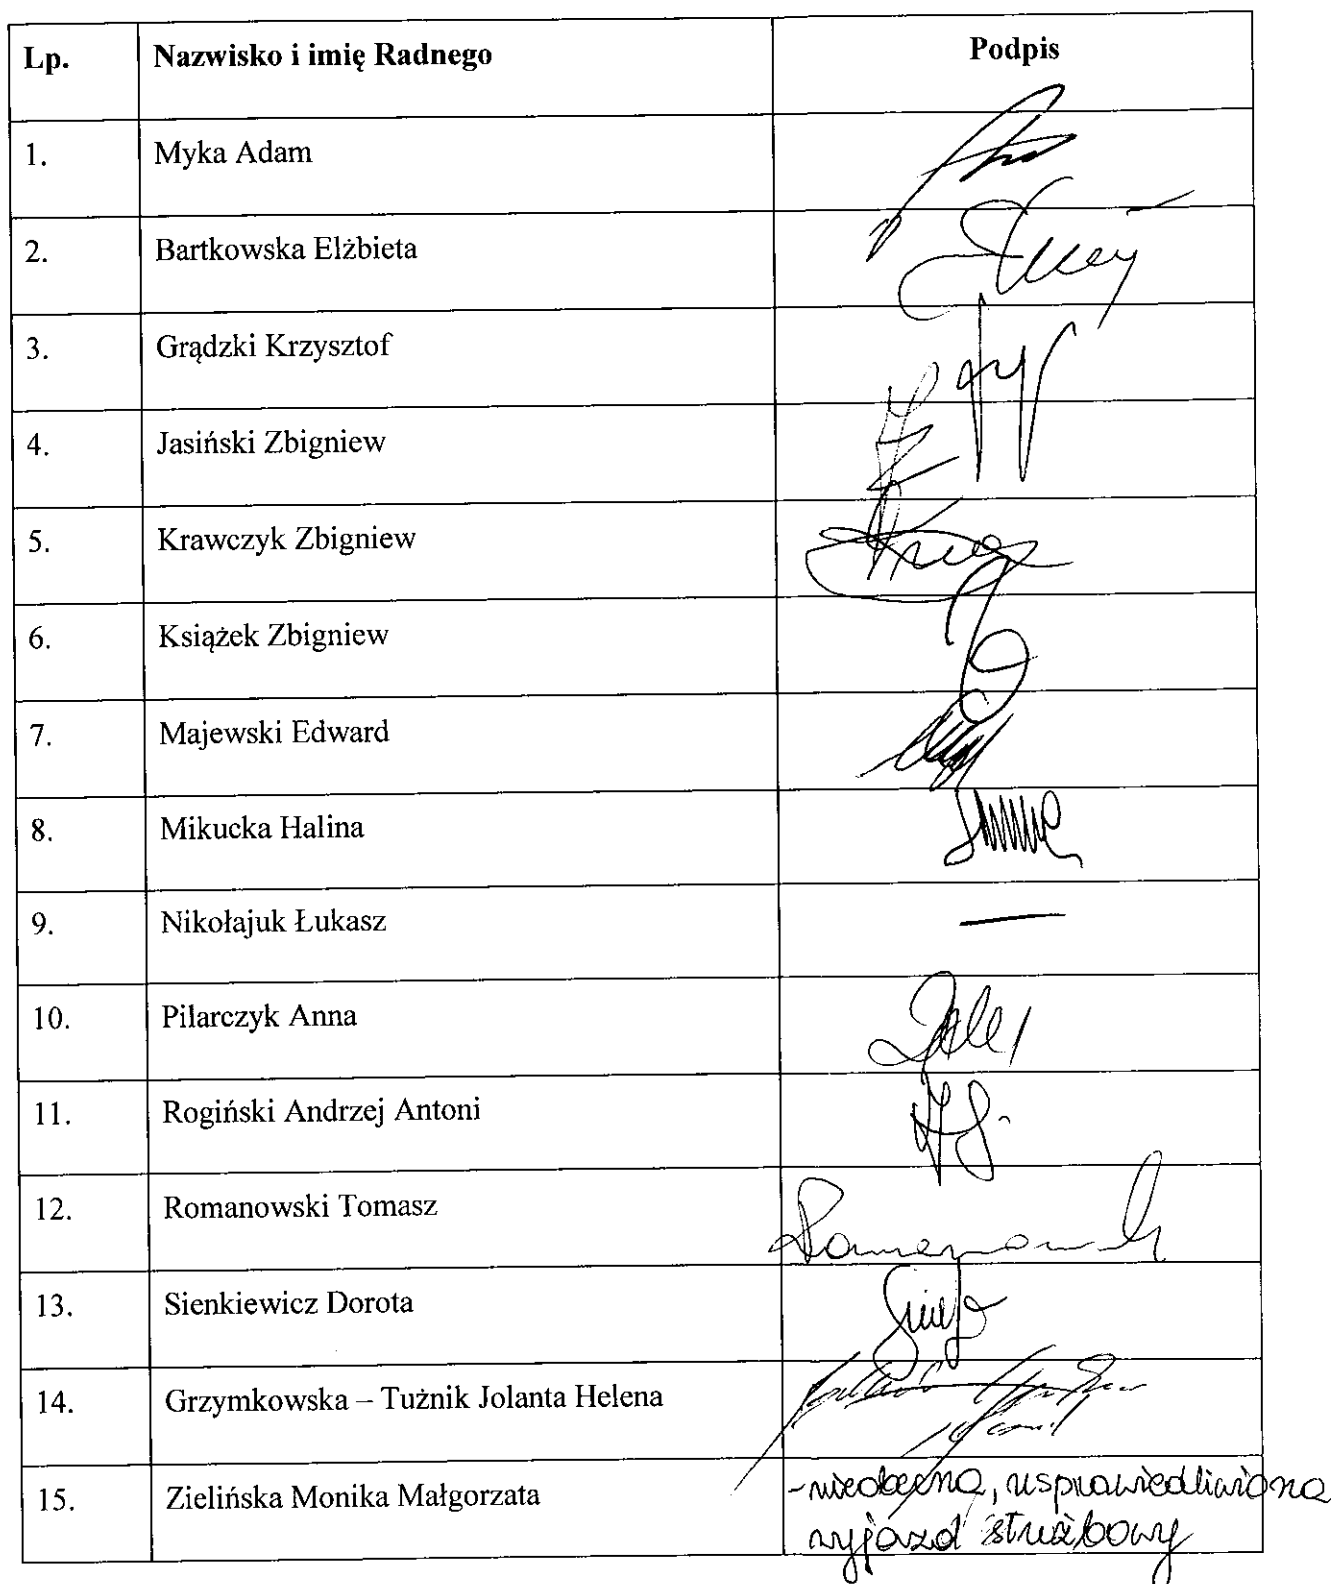 Lp. Nazwisko i imię Radnego Podpis
1. Myka Adam
2. Bartkowska Elżbieta
3. Grądzki Krzysztof
4. Jasiński Zbigniew
5. Krawczyk Zbigniew
6. Książek Zbigniew
7. Majewski Edward
8. Mikucka Halina
9. Nikołajuk Łukasz —
10. Pilarczyk Anna
11. Rogiński Andrzej Antoni
12. Romanowski Tomasz
13. Sienkiewicz Dorota
14. Grzymkowska – Tużnik Jolanta Helena
15. Zielińska Monika Małgorzata - nieobecna, usprawiedliwiona
wyjazd służbowy